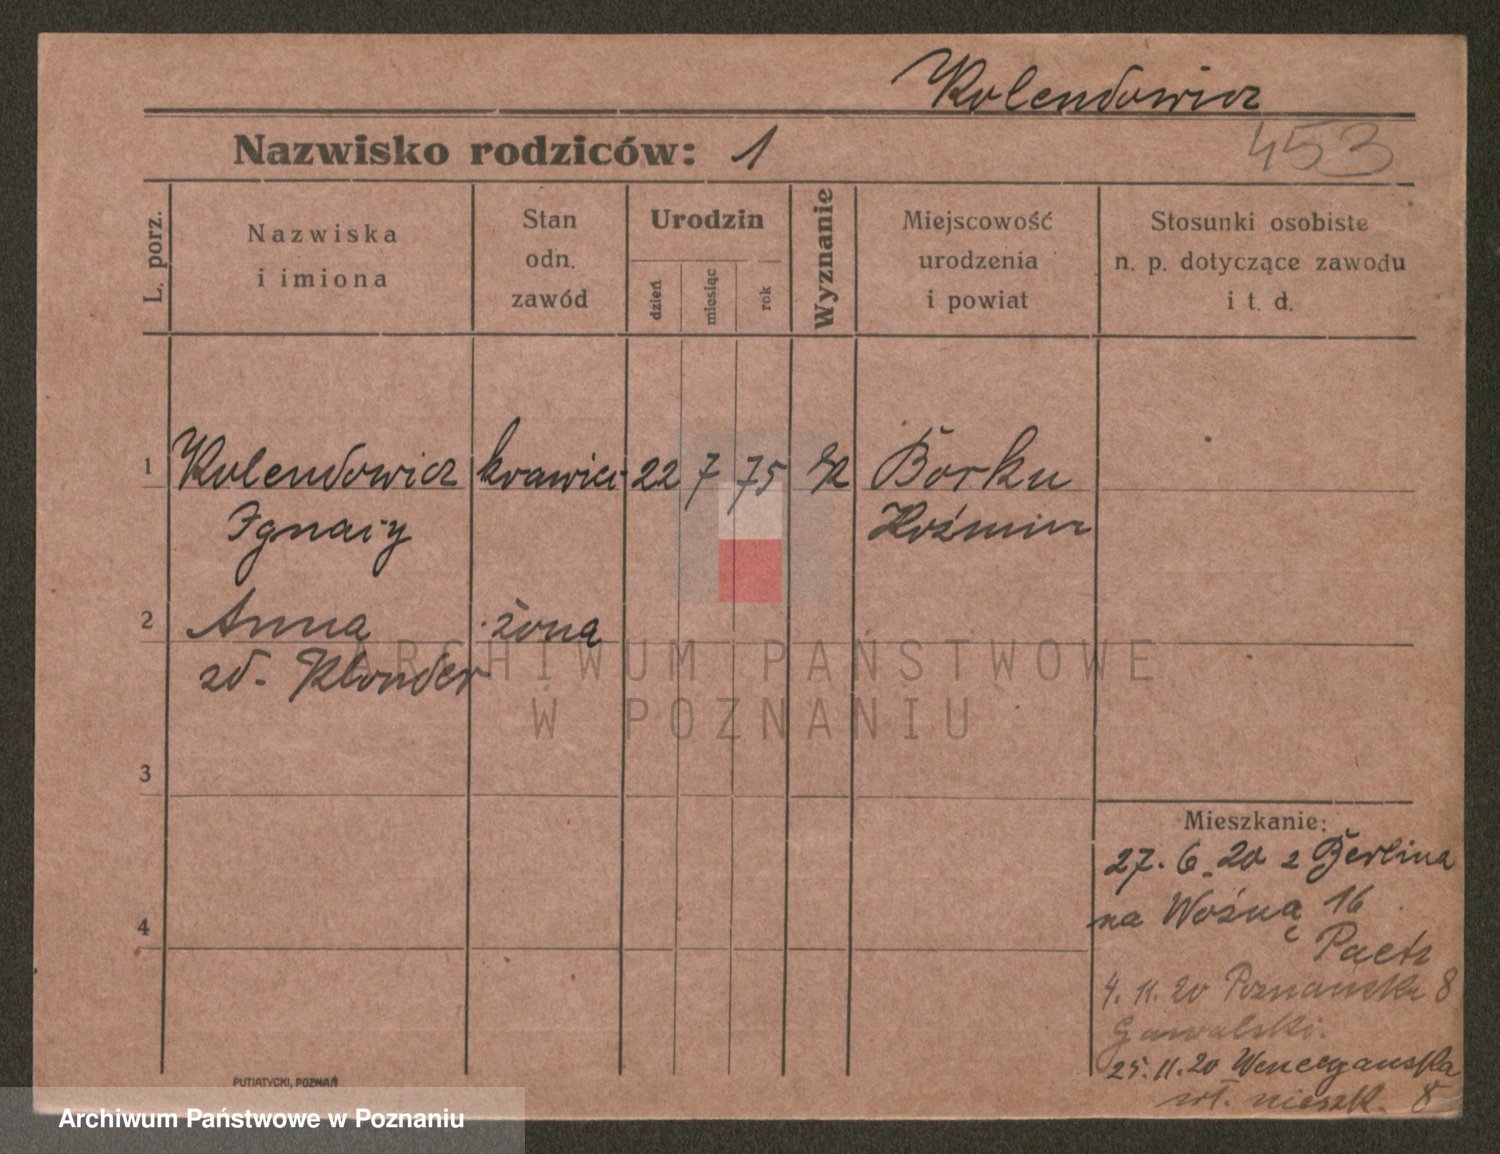 Kolendowicz
Nazwisko rodziców: 1
453
L. porz.
Nazwiska
i imiona
Stan
odn.
zawód
Urodzin
dzień
miesiąc
rok
Wyznanie
Miejscowość
urodzenia
i powiat
Stosunki osobiste
n. p. dotyczące zawodu
i t. d.
1 Kolendowicz krawiec 22 7 75 Borku
Ignacy Koźmin
2 Anna żona
zd. Klonder
ARCHIWUM PAŃSTWOWE
W POZNANIU
3
Mieszkanie:
27. 6. 20 z Berlina
na Woźną 16
4
Paetz
4. 11. 20 Poznańska 8
Gawalski.
25. 11. 20 Wenecyańska
wł. mieszk. 8
PUTIATYCKI, POZNAŃ
Archiwum Państwowe w Poznaniu